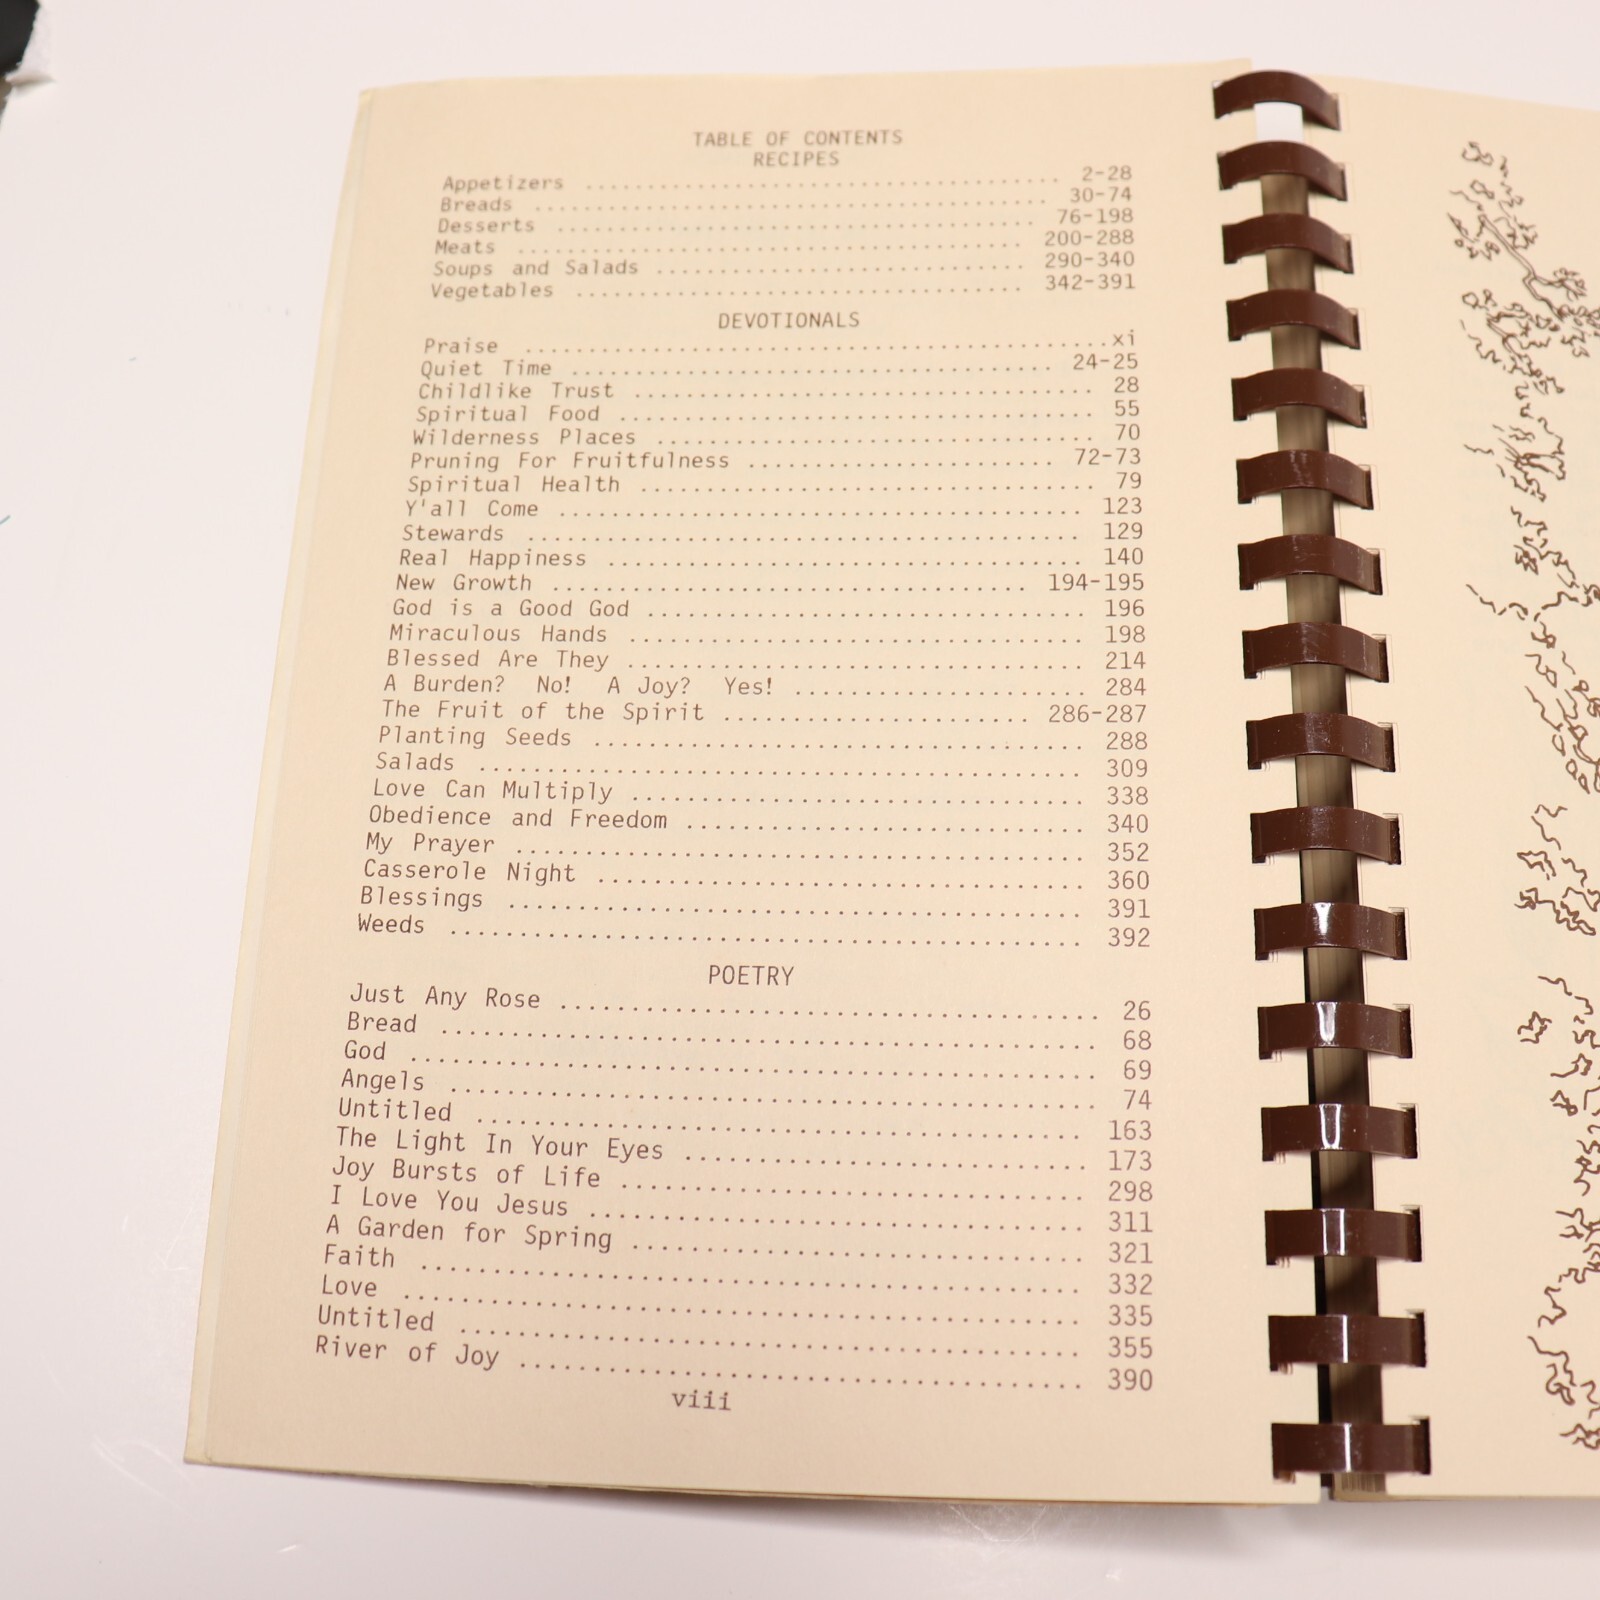 TABLE OF CONTENTS
RECIPES
Appetizers ........................................ 2-28
Breads ........................................ 30-74
Desserts ..................................... 76-198
Meats ........................................ 200-288
Soups and Salads .............................. 290-340
Vegetables .................................... 342-391
DEVOTIONALS
Praise ................................................xi
Quiet Time ........................................ 24-25
Childlike Trust ...................................... 28
Spiritual Food ....................................... 55
Wilderness Places .................................... 70
Pruning For Fruitfulness .......................... 72-73
Spiritual Health ..................................... 79
Y'all Come .......................................... 123
Stewards ............................................ 129
Real Happiness ...................................... 140
New Growth ...................................... 194-195
God is a Good God ................................... 196
Miraculous Hands .................................... 198
Blessed Are They .................................... 214
A Burden? No! A Joy? Yes! ......................... 284
The Fruit of the Spirit ......................... 286-287
Planting Seeds ...................................... 288
Salads .............................................. 309
Love Can Multiply ................................... 338
Obedience and Freedom ............................... 340
My Prayer ........................................... 352
Casserole Night ..................................... 360
Blessings ........................................... 391
Weeds ............................................... 392
POETRY
Just Any Rose ........................................ 26
Bread ................................................ 68
God .................................................. 69
Angels ............................................... 74
Untitled ............................................ 163
The Light In Your Eyes .............................. 173
Joy Bursts of Life .................................. 298
I Love You Jesus .................................... 311
A Garden for Spring ................................. 321
Faith ............................................... 332
Love ................................................ 335
Untitled ............................................ 355
River of Joy ........................................ 390
viii